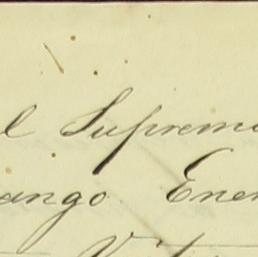 l Suprem
ango Ene